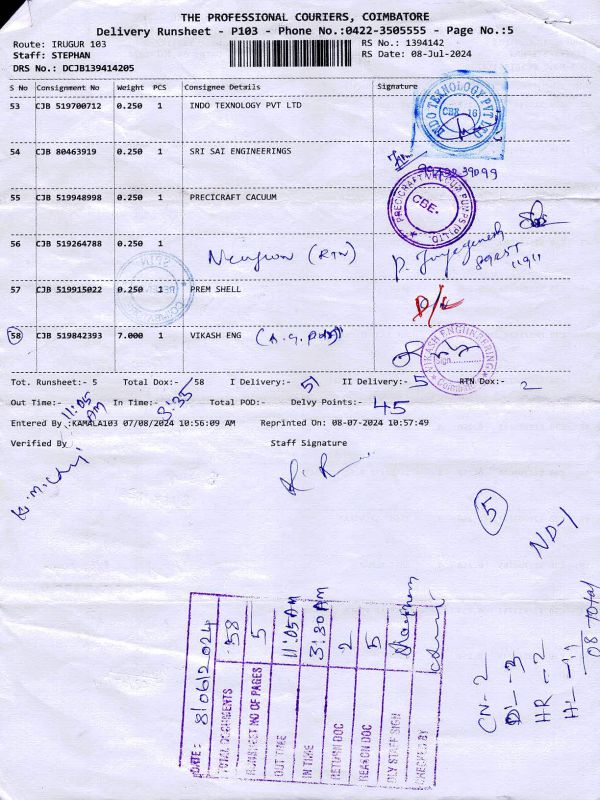 THE PROFESSIONAL COURIERS, COIMBATORE
Delivery Runsheet - P103 - Phone No.:0422-3505555 - Page No.:5
Route: IRUGUR 103
RS No.: 1394142
Staff: STEPHAN
RS Date: 08-Jul-2024
DRS No.: DCJB139414205
S No Consignment No Weight PCS Consignee Details Signature
53 CJB 519700712 0.250 1 INDO TEXNOLOGY PVT LTD
INDO TEXNOLOGY PVT LTD
CBE - 16
54 CJB 80463919 0.250 1 SRI SAI ENGINEERINGS
55 CJB 519948998 0.250 1 PRECICRAFT CACUUM
PRECICRAFT VACUUM PUMPS (P) LTD.
CBE.
56 CJB 519264788 0.250 1 (RTN)
57 CJB 519915022 0.250 1 PREM SHELL
D/L
58 CJB 519842393 7.000 1 VIKASH ENG
VIKASH ENGINEERING
Sign
Coimbatore
Tot. Runsheet:- 5 Total Dox:- 58 I Delivery:- 51 II Delivery:- 5 RTN Dox:- 2
Out Time:- 11:05 AM In Time:- 3:35 Total POD:- Delvy Points:- 45
Entered By :KAMALA103 07/08/2024 10:56:09 AM Reprinted On: 08-07-2024 10:57:49
Verified By Staff Signature
5
ND-1
DATE: 8/06/2024
TOTAL DOCUMENTS 58
RUNSHEET NO OF PAGES 5
OUT TIME 11:05AM
IN TIME 3:30AM
RETURN DOC 2
REASON DOC 5
DLY STAFF SIGN
CHECKED BY
CN-2
DL-3
HR-2
08 Total